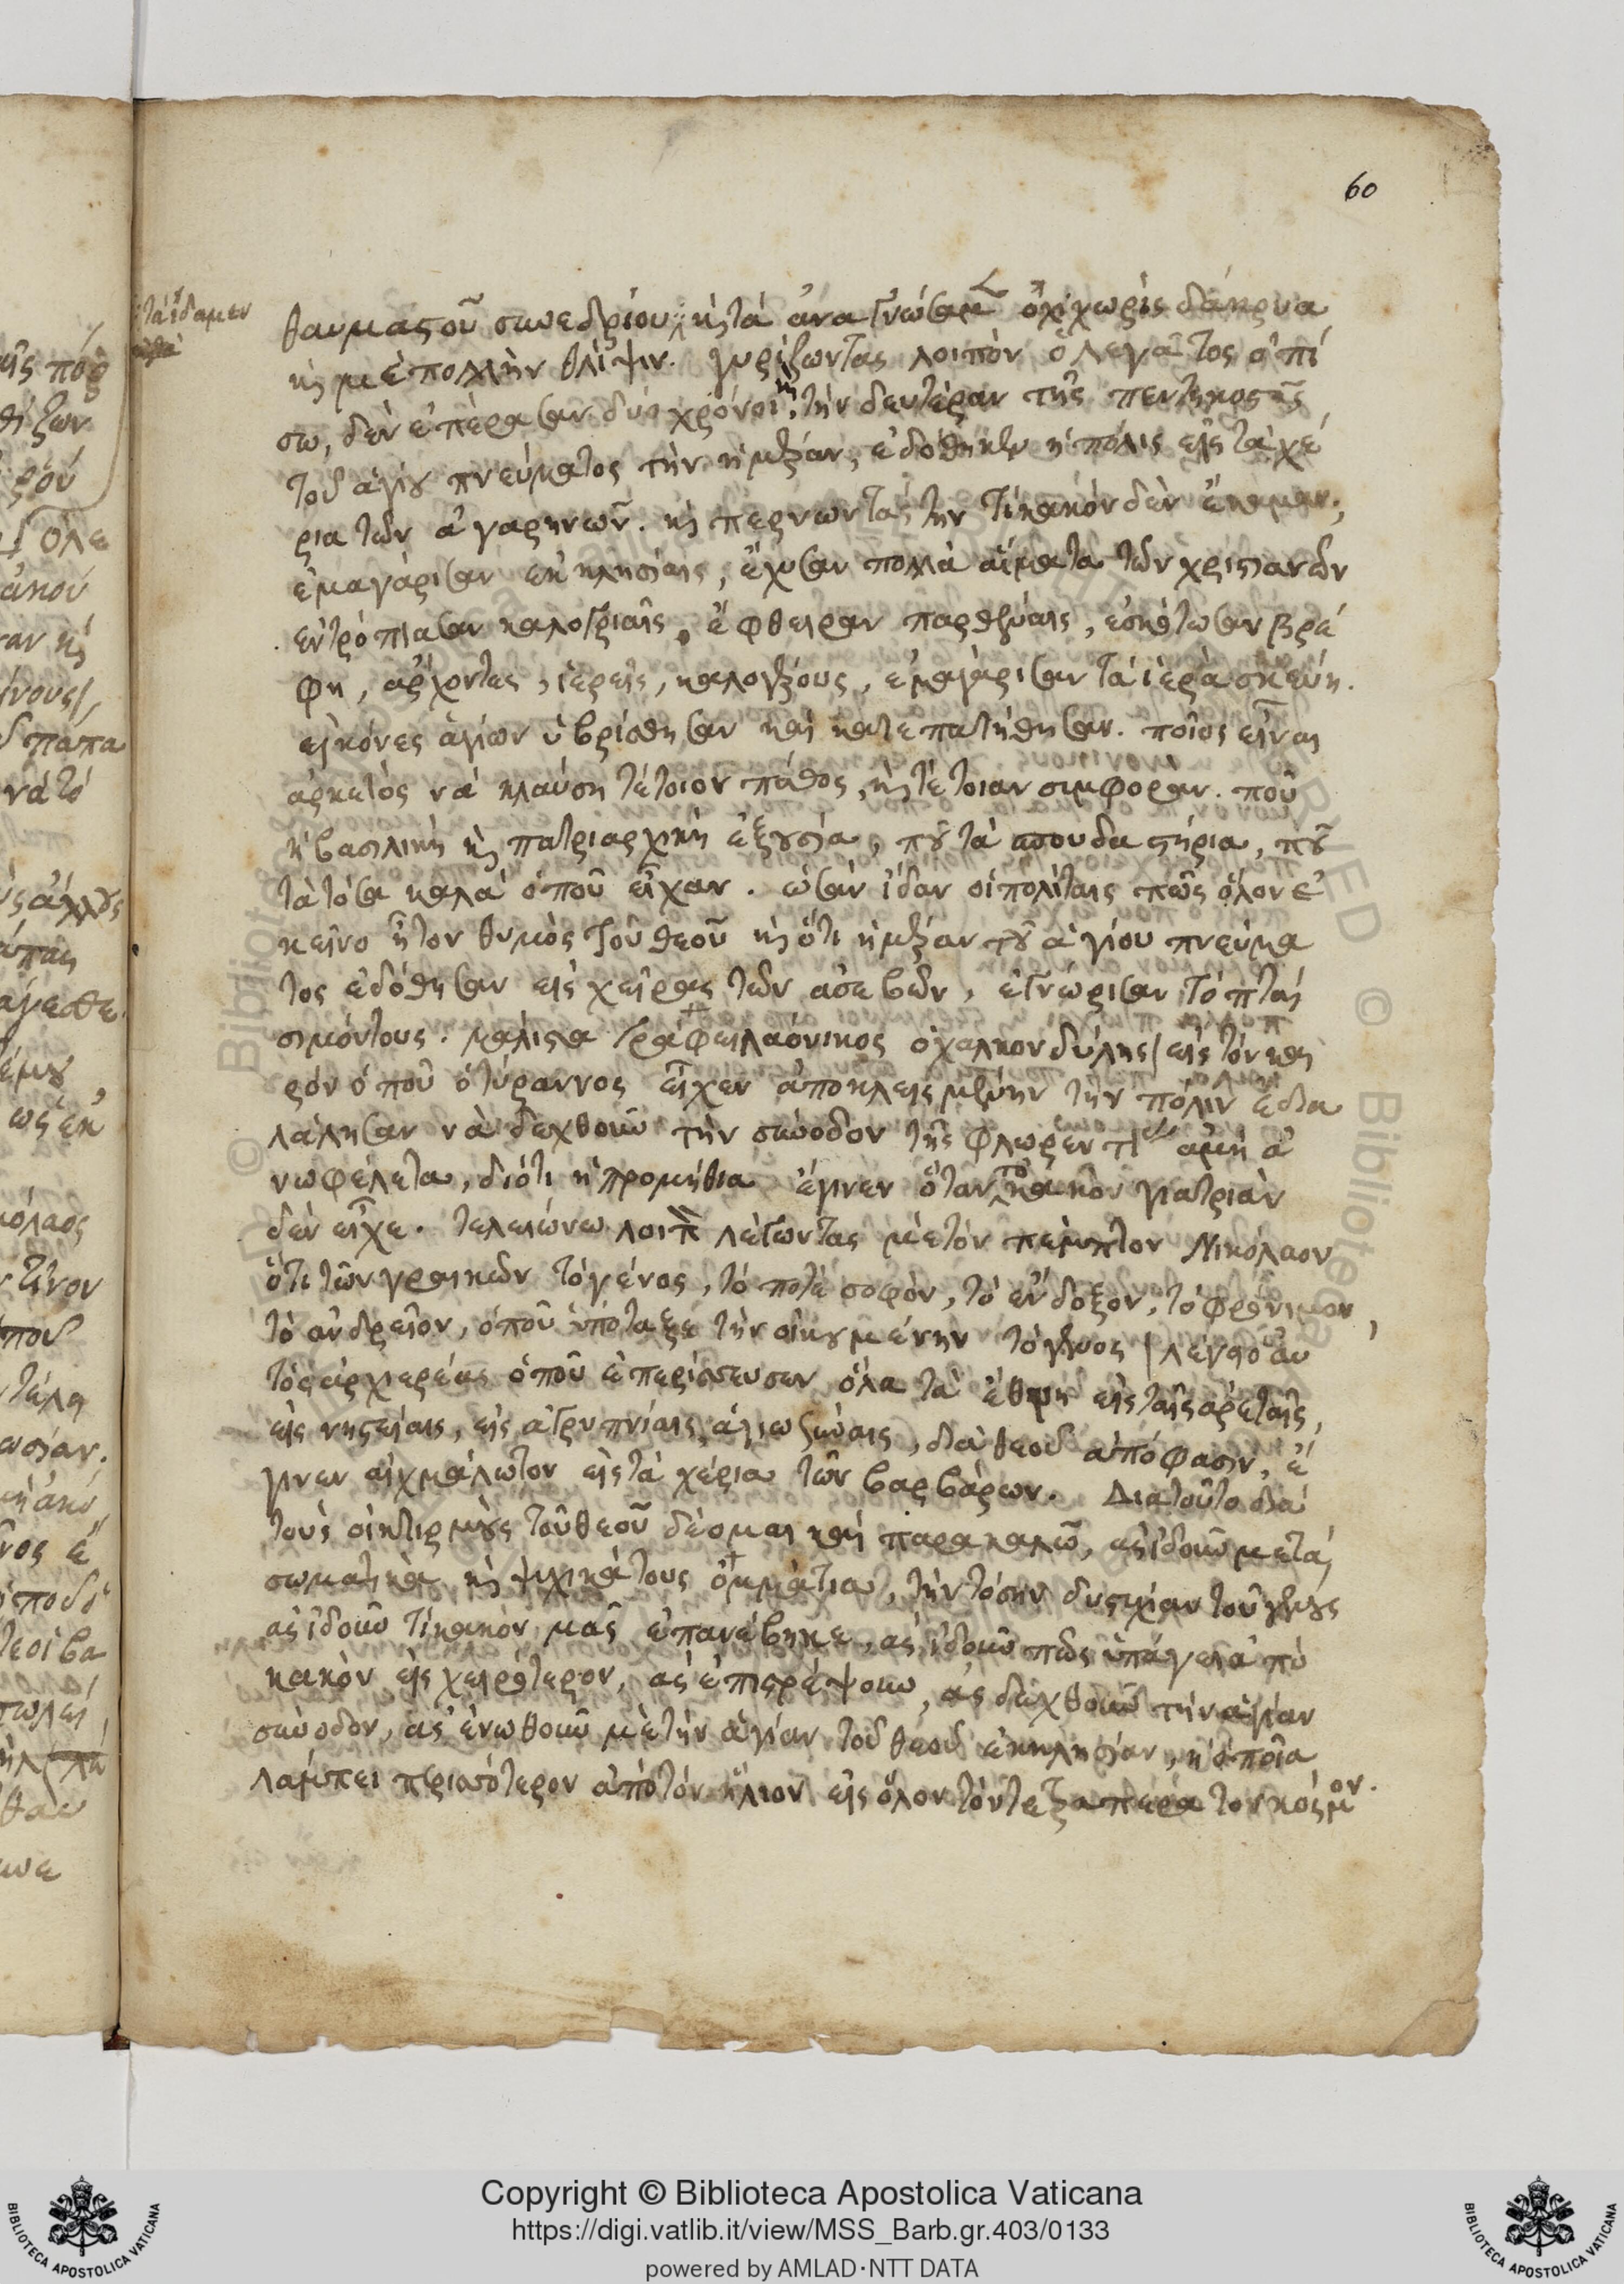 60
τὰ ἴδαμεν
θαυμαστοῦ συνεδρίου κὴ τὰ ἀναγνώσαμ ὄχι χωρὶς δάκρυα
κὴ μὲ πολλὴν θλίψιν. γυρίζωντας λοιπὸν ὁ λεγάτος ὀπί
σω, δὲν ἐπέρασαν δύο χρόνοι κὴ τὴν δευτέραν τῆς πεντηκοστῆς
τοῦ ἁγίου πνεύματος τὴν ἡμέραν, ἐδόθηκεν ἡ πόλις εἰς τὰ χέ
ρια τῶν ἀγαρηνῶν. κὴ περνωντάς την τί κακὸν δὲν ἔκαμαν,
ἐμαγάρισαν ἐκκλησίαις, ἔχυσαν πολλὰ αἵματα τῶν χριστιανῶν
ἐντρόπιασαν καλογριαῖς, ἔφθειραν παρθέναις, ἐσκότωσαν βρέ
φη, ἄρχοντες, ἱερεῖς, καλογέρους, ἐμαγάρισαν τὰ ἱερὰ σκεύη.
εἰκόνες ἁγίων ὑβρίσθησαν καὶ κατεπατήθησαν. ποῖος εἶναι
ἀρκετὸς νὰ κλαύση τέτοιον πάθος, κὴ τέτοιαν συμφοράν. ποῦ
ἡ βασιλικὴ κὴ πατριαρχικὴ ἐξουσία, ποῦ τὰ σπουδαστήρια, ποῦ
τὰ τόσα καλὰ ὁποῦ εἶχαν. ὡσὰν ἴδαν οἱ πολίταις πῶς ὅλον ἐ
κεῖνο ἦτον θυμὸς τοῦ θεοῦ κὴ ὅτι ἡμέραν τοῦ ἁγίου πνεύμα
τος ἐδόθησαν εἰς χεῖρας τῶν ἀσεβῶν, ἐγνώρισαν τὸ πταί
σιμόν τους. μάλιστα γράφει λαόνικος ὁ χαλκονδύλης εἰς τὸν και
ρὸν ὁποῦ ὁ τύραννος εἶχεν ἀποκλεισμένην τὴν πόλιν ἐδια
λάλησαν νὰ δεχθοῦν τὴν σύνοδον τῆς φλωρεντί ἀμὴ ἀ
νωφέλετα, διότι ἡ προμήθια ἔγινεν ὅταν τὸ κακὸν γιατριὰν
δὲν εἶχε. τελειώνω λοιπ λέγωντας μὲ τὸν πέμπτον Νικόλαον
ὅτι τῶν γραικῶν τὸ γένος, τὸ ποτὲ σοφὸν, τὸ ἔνδοξον, τὸ φρόνιμον,
τὸ ἀνδρεῖον, ὁποῦ ὑπόταξε τὴν οἰκουμένην τὸ γένος
τοὺς ἀρχιερέας ὁποῦ ἐπερίσσευσεν ὅλα τὰ ἔθνη εἰς ταῖς ἀρεταῖς,
εἰς νηστείαις, εἰς ἀγρυπνίαις, ἁγιωσύναις, διὰ θεοῦ ἀπόφασιν, ἔ
γινεν αἰχμάλωτον εἰς τὰ χέρια τῶν βαρβάρων. Διατοῦτο διὰ
τοὺς οἰκτιρμοὺς τοῦ θεοῦ δέομαι καὶ παρακαλῶ, ἂς ἰδοῦν μετὰ
σωματικὰ κὴ ψυχικά τους ὀμμάτια, τὴν τόσην δυστυχίαν τοῦ γένους
ἂς ἰδοῦν τί κακὸν μᾶς ἐπανέβηκε, ἂς ἰδοῦν πῶς ὑπάγει ἀπὸ
κακὸν εἰς χειρότερον, ἂς ἐπιστρέψουν, ἂς δεχθοῦν τὴν ἁγίαν
σύνοδον, ἂς ἑνωθοῦν μὲ τὴν ἁγίαν τοῦ θεοῦ ἐκκλησίαν, ἡ ὁποῖα
λάμπει περισσότερον ἀπὸ τὸν ἥλιον εἰς ὅλον τὸν τετραπέρατον κόσμον.
Copyright © Biblioteca Apostolica Vaticana
https://digi.vatlib.it/view/MSS_Barb.gr.403/0133
powered by AMLAD·NTT DATA